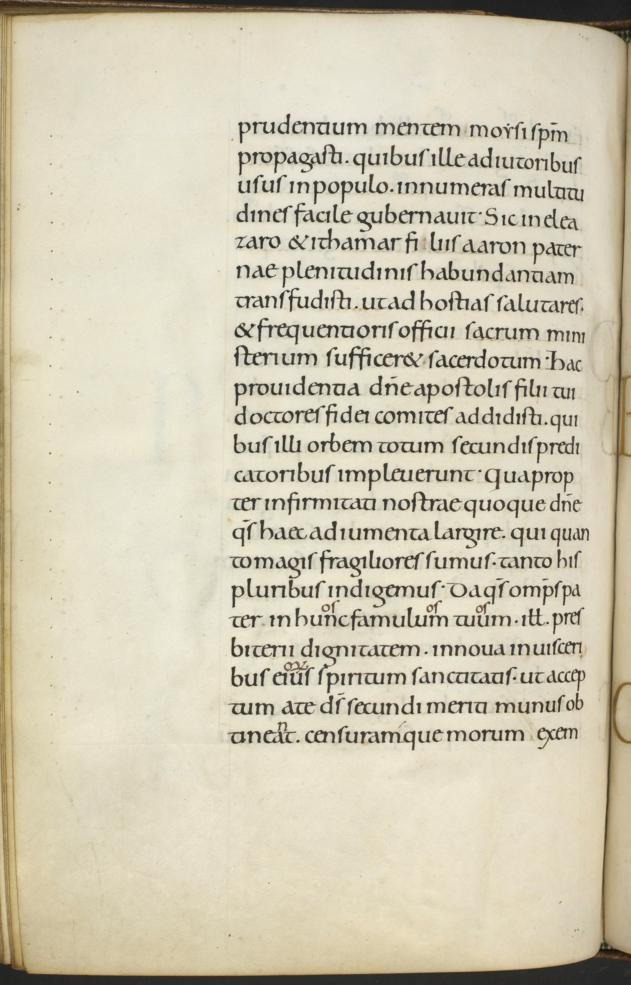 prudentium mentem moẏsi sp̄m
propagasti. quibus ille adiutoribus
usus in populo. innumeras multitu
dines facile gubernauit· Sic in elea
zaro & ithamar filiis aaron pater
nae plenitudinis habundantiam
transfudisti. ut ad hostias salutares.
& frequentioris officii sacrum mini
sterium sufficer& sacerdotum· hac
prouidentia dn̄e apostolis filii tui
doctores fidei comites addidisti. qui
bus illi orbem totum secundis predi
catoribus impleuerunt· Quaprop
ter infirmitati nostrae quoque dn̄e
qs̄ haec adiumenta largire. qui quan
to magis fragiliores sumus. tanto his
pluribus indigemus· Da qs̄ omp̄s pa
os os os
ter. in hunc famulum tuum. ill̄. pres
biterii dignitatem. innova in uisceri
orum
bus eius spiritum sanctitatis. ut accep
tum a te ds̄ secundi meriti munus ob
n
tineat. censuramque morum exem